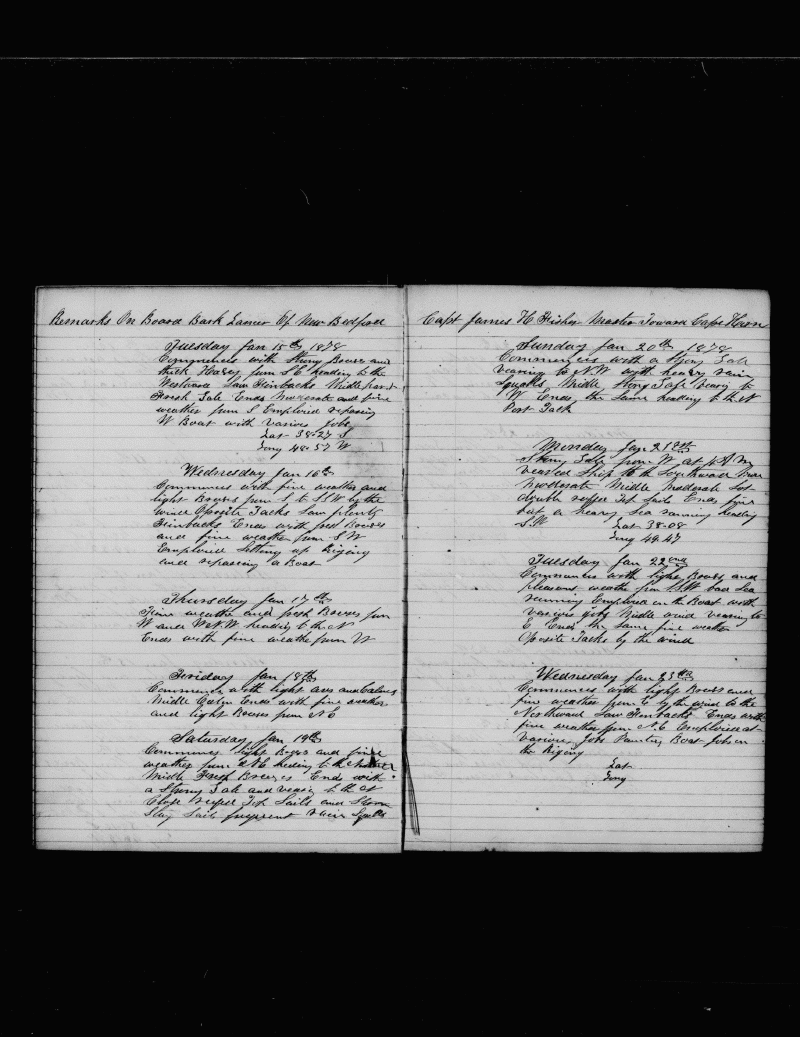 Remarks On Board Bark Lancer Of New Bedford
Tuesday Jan 15th 1878
Commences with Strong Breeses and
thick Hasey from SE heading to the
Westward Saw Finbacks Middle part
Fresh Gale Ends Moderate and fine
weather from S Employed repasing
W Boat with Varios Jobs
Lat 38-27 S
Long 48-57 W
Wednesday Jan 16th
Commences with fine weather and
light Breeses from S to SSW by the
wind Oposite Tacks Saw plenty
Finbacks Ends with fresh Breeses
and fine weather from SW
Employed Setting up Riging
and repasing a Boat
Thursday Jan 17th
Fine weathe and fresh Breeses from
W and WNW heading to the N
Ends with fine weathe from W
Friday Jan 18th
Commence with light airs and Calms
Middle Calm Ends with fine weather
and light Breeses from NE
Saturday Jan 19th
Commences light Breses and fine
weather from NE heding to the
Middle Fresh Breeses Ends with
a Strong Gale and veering to the N
Close Reefed Top Sails and Storm
Stay Sails frequent rain Squalls
Capt James H Fisher Master Toward Cape Horn
Sunday Jan 20th 1878
Commences with a Strong Gale
vearing to NW with heavy rain
Squalls Middle Strong Gale bearing to
W Ends the Same heading to the N
Port Tack
Monday Jan 21st
Strong Gale from W at 4 AM
veared Ship to the Southward
Moderate Middle Moderate Set
double reefed Top Sails Ends fine
but a heavy Sea running heading
S.W Lat 38-08
Long 49-47
Tuesday Jan 22ond
Commences with light Breeses and
pleasant weathe from SW bad Sea
running Employed on the Boat with
varios jobs Middle wind vearing to
E Ends the Same fine weather
Oposite Tacks by the wind
Wednesday Jan 23rd
Commences with light Breeses and
fine weather from E by the wind to the
Northward Saw Finbacks Ends with
fine weather from N.E Employed at
Varios Jobs Painting Boat Jobs in
the Riging
Lat
Long